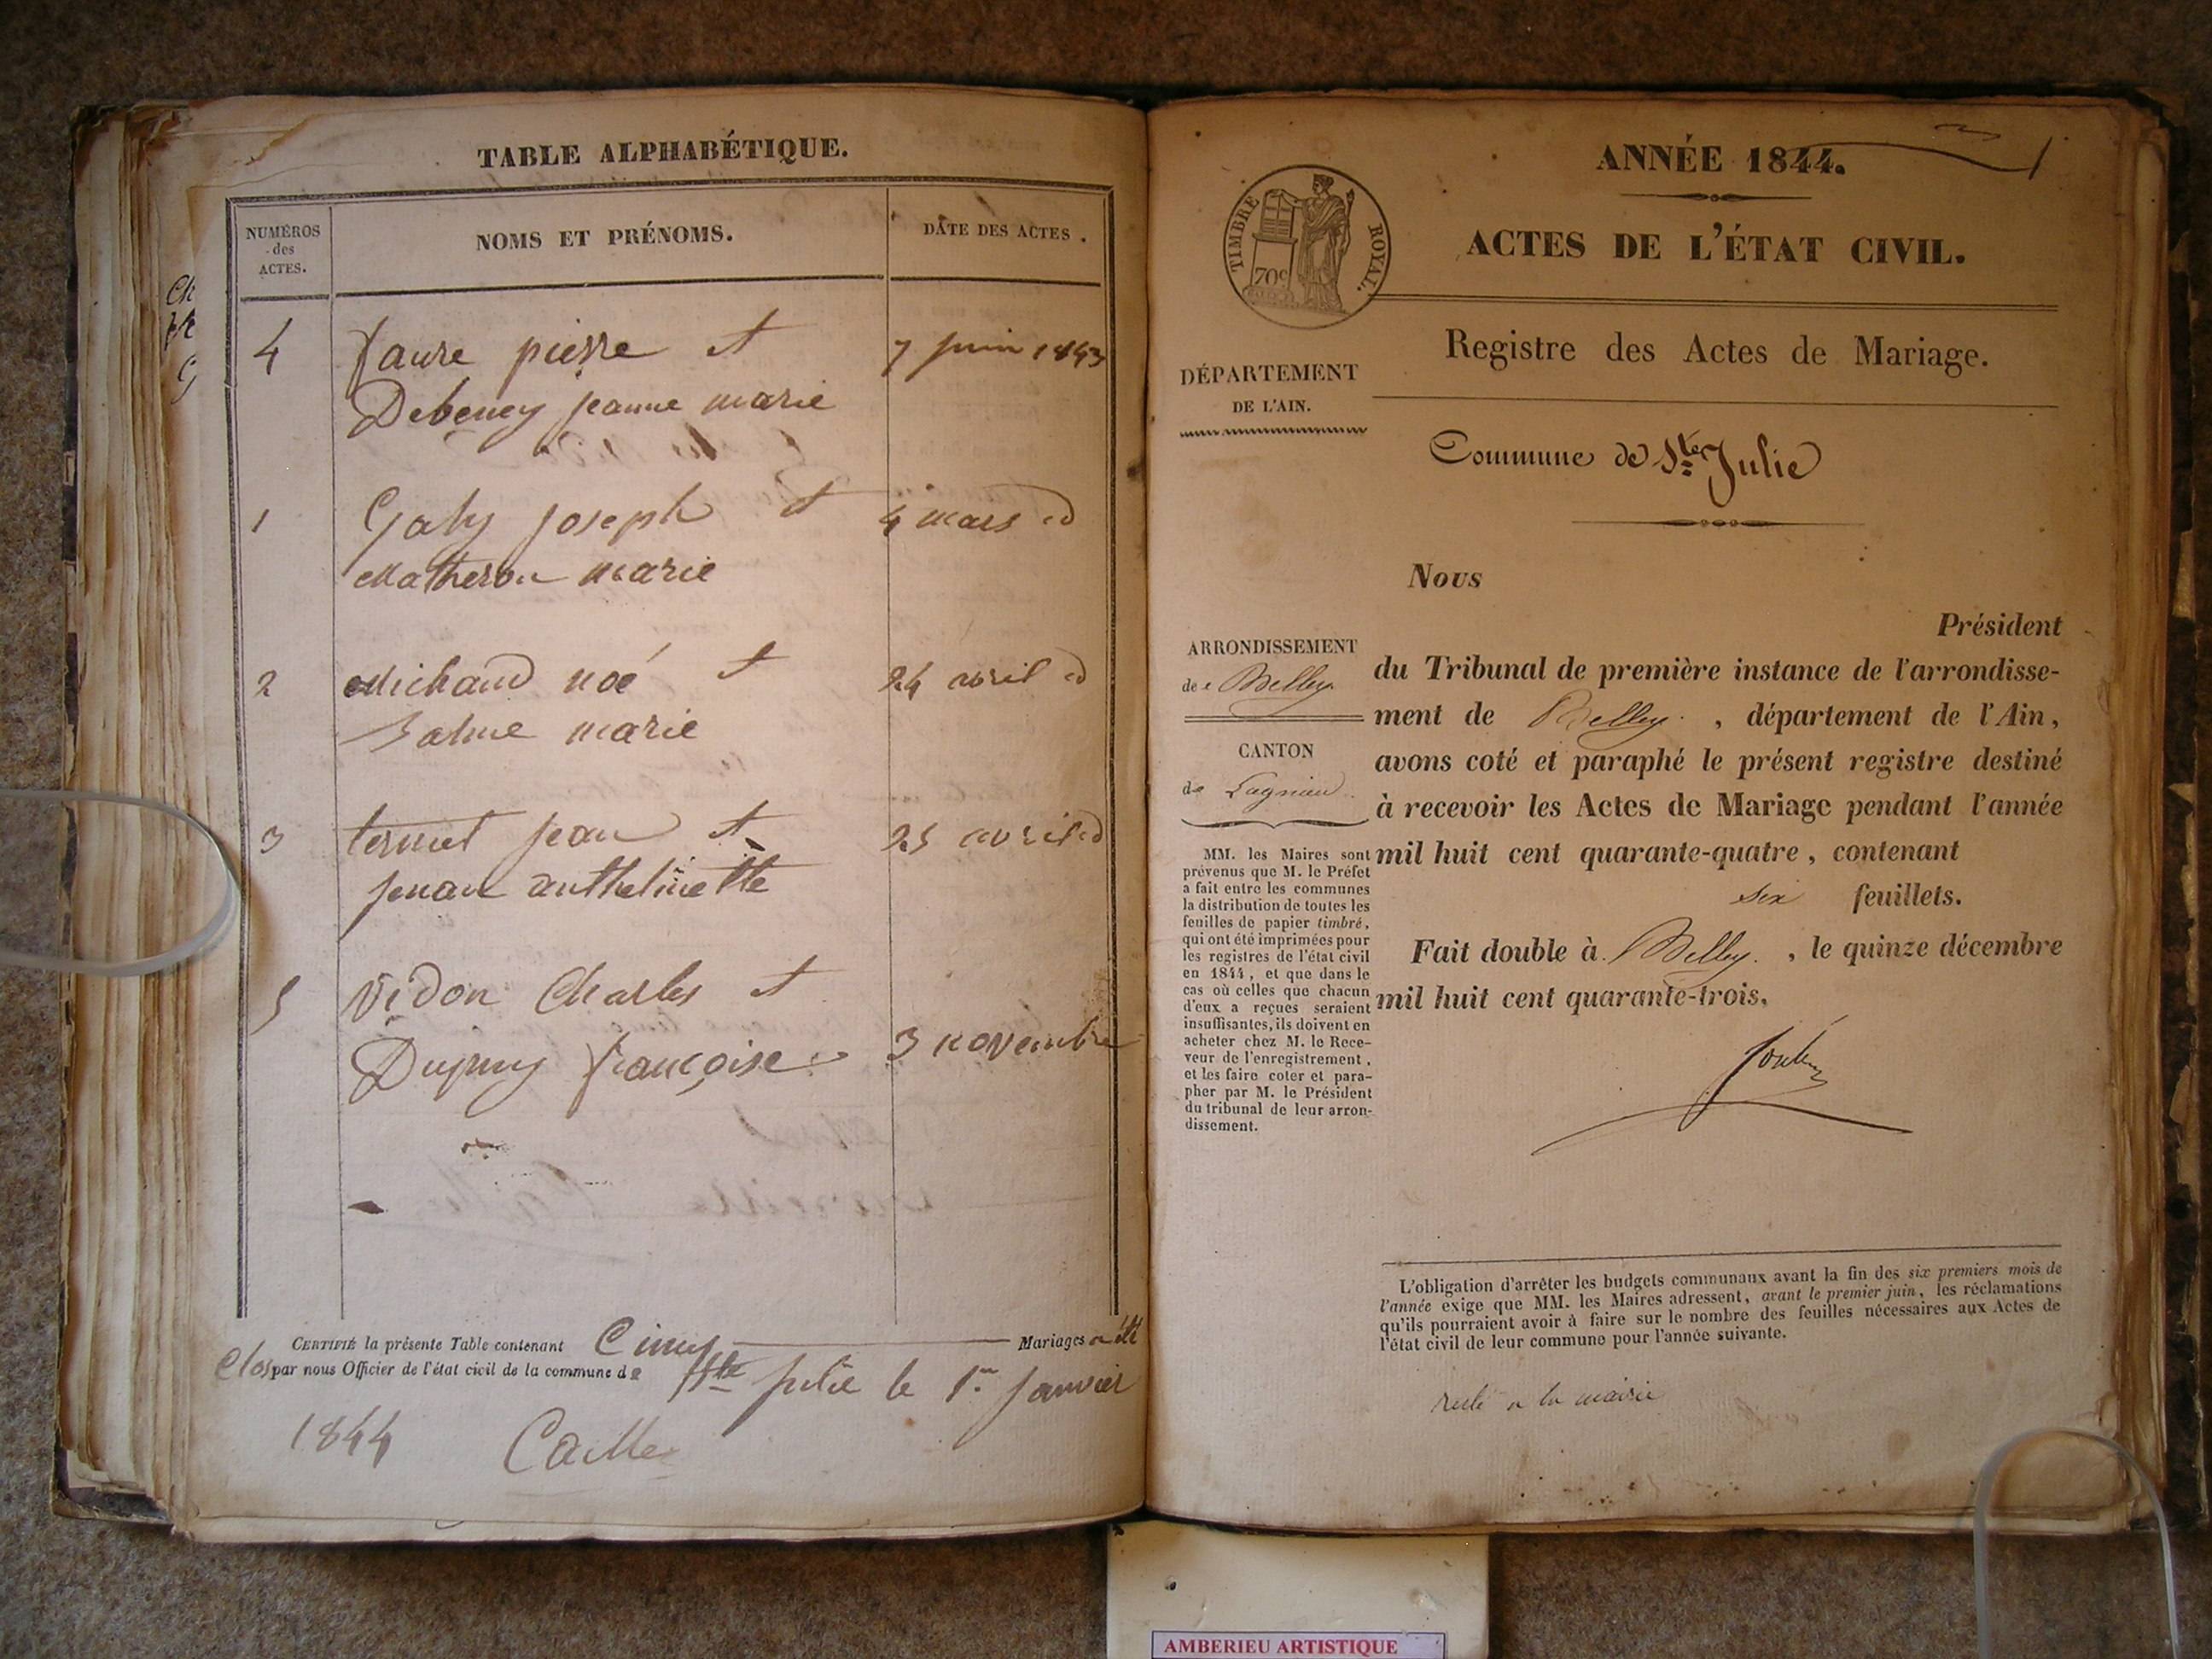 TABLE ALPHABÉTIQUE.
NUMÉROS
des
ACTES.
NOMS ET PRÉNOMS.
DATE DES ACTES.
4 faure pierre et 7 juin 1843
Debeney jeanne marie
1 Galy joseph et 4 mars id
Matheron marie
2 Michaud noé et 24 avril id
marie
3 jean et 25 avril id
anthelmette
5 vidon Charles et
Dupuy françoise 3 novembre
CERTIFIÉ la présente Table contenant Cinq Mariages a été
Clos par nous Officier de l'état civil de la commune de Ste julie le 1er janvier
1844 Caille
ANNÉE 1844.
1
TIMBRE ROYAL.
70c
ACTES DE L'ÉTAT CIVIL.
Registre des Actes de Mariage.
DÉPARTEMENT
DE L'AIN.
Commune de Ste Julie
Nous
Président
du Tribunal de première instance de l'arrondisse-
ment de Belley. , département de l'Ain,
avons coté et paraphé le présent registre destiné
à recevoir les Actes de Mariage pendant l'année
mil huit cent quarante-quatre, contenant
six feuillets.
Fait double à Belley. , le quinze décembre
mil huit cent quarante-trois.
ARRONDISSEMENT
de Belley.
CANTON
de Lagnieu
MM. les Maires sont
prévenus que M. le Préfet
a fait entre les communes
la distribution de toutes les
feuilles de papier timbré,
qui ont été imprimées pour
les registres de l'état civil
en 1844, et que dans le
cas où celles que chacun
d'eux a reçues seraient
insuffisantes, ils doivent en
acheter chez M. le Rece-
veur de l'enregistrement,
et les faire coter et para-
pher par M. le Président
du tribunal de leur arron-
dissement.
L'obligation d'arrêter les budgets communaux avant la fin des six premiers mois de
l'année exige que MM. les Maires adressent, avant le premier juin, les réclamations
qu'ils pourraient avoir à faire sur le nombre des feuilles nécessaires aux Actes de
l'état civil de leur commune pour l'année suivante.
a la mairie
AMBERIEU ARTISTIQUE